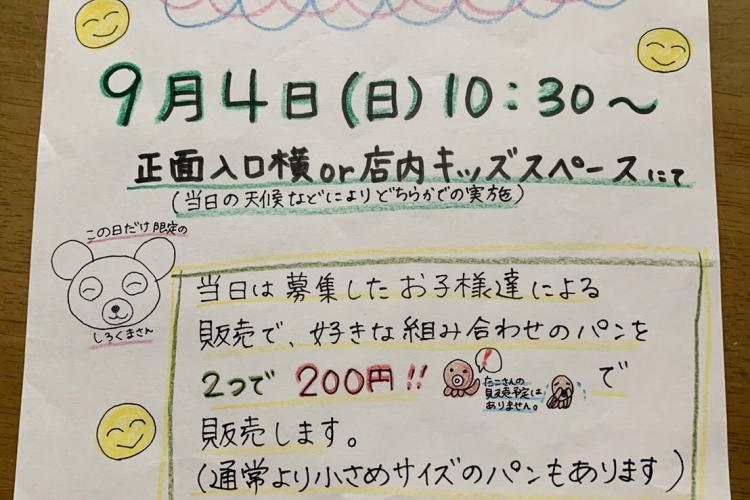 9月4日(日)10:30～
正面入口横or店内キッズスペースにて
(当日の天候などによりどちらかでの実施)
この日だけ限定の
しろくまさん
当日は募集したお子様達による
販売で、好きな組み合わせのパンを
2つで 200円!! で
!
たこさんの
販売予定は
ありません。
販売します。
(通常より小さめサイズのパンもあります)